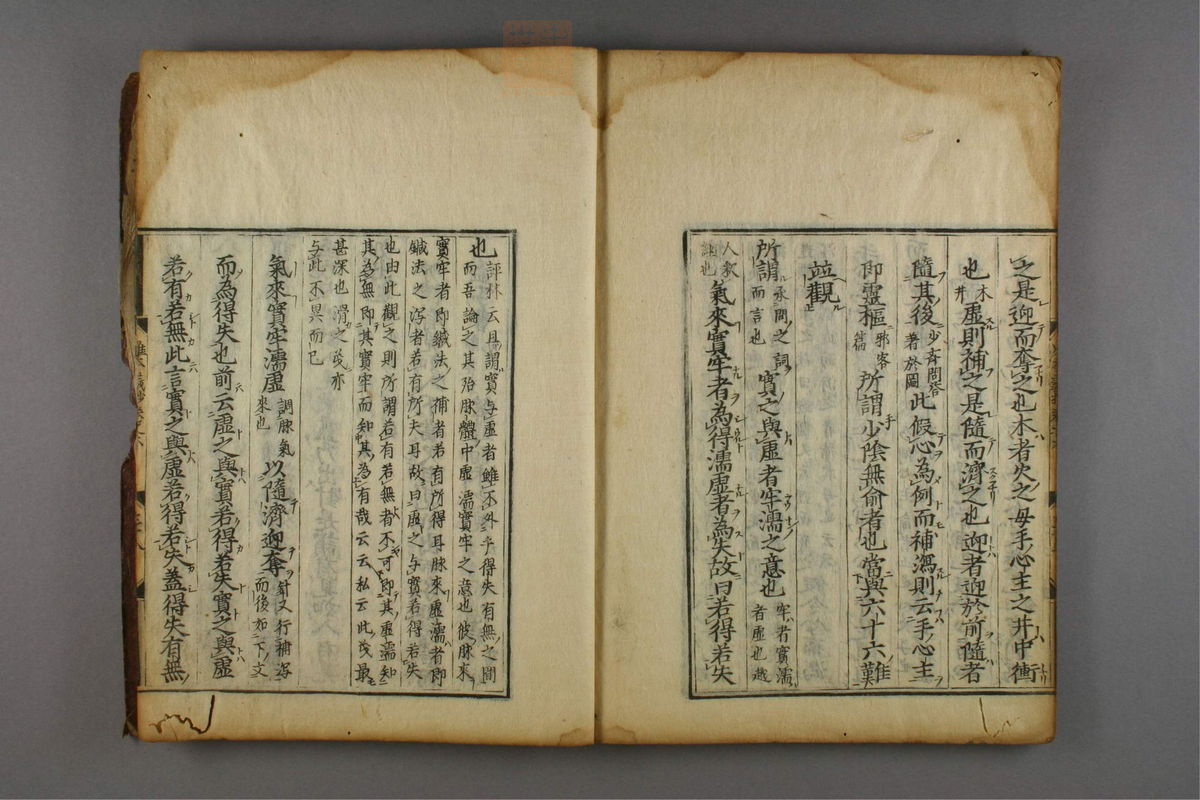 之是迎而奪之也木者火之母手心主之井中衝
也木井虛則補之是隨而濟之也迎者迎於前隨者
隨其後少斉問答著於圖此假心為例而補瀉則云手心主
即靈樞邪客篇所謂少陰無俞者也當與六十六難
並觀
所謂承問之詞而言也實之與虛者牢濡之意也牢者實濡者虛也越
人釈氣來實牢者為得濡虛者為失故曰若得若失
也評林云且謂實与虛者雖不外乎得失有無之間
而吾論之其殆脉體中虛濡實牢之意也彼脉來
實牢者即鍼法之補者若有所得耳脉來虛濡者即
鍼法之泻者若有所失耳故曰虛之与實若得若失
也由此觀之則所謂若有若無者不可即其虛濡知
其為無即其實牢而知其為有哉云云私云此茂最
甚深也滑之茂亦
与此不異而已
氣來實牢濡虛調脉氣來也以隨濟迎奪針又行補泻而後如下文
而為得失也前云虛之與實若得若失實之與虛
若有若無此言實之與虛若得若失蓋得失有無